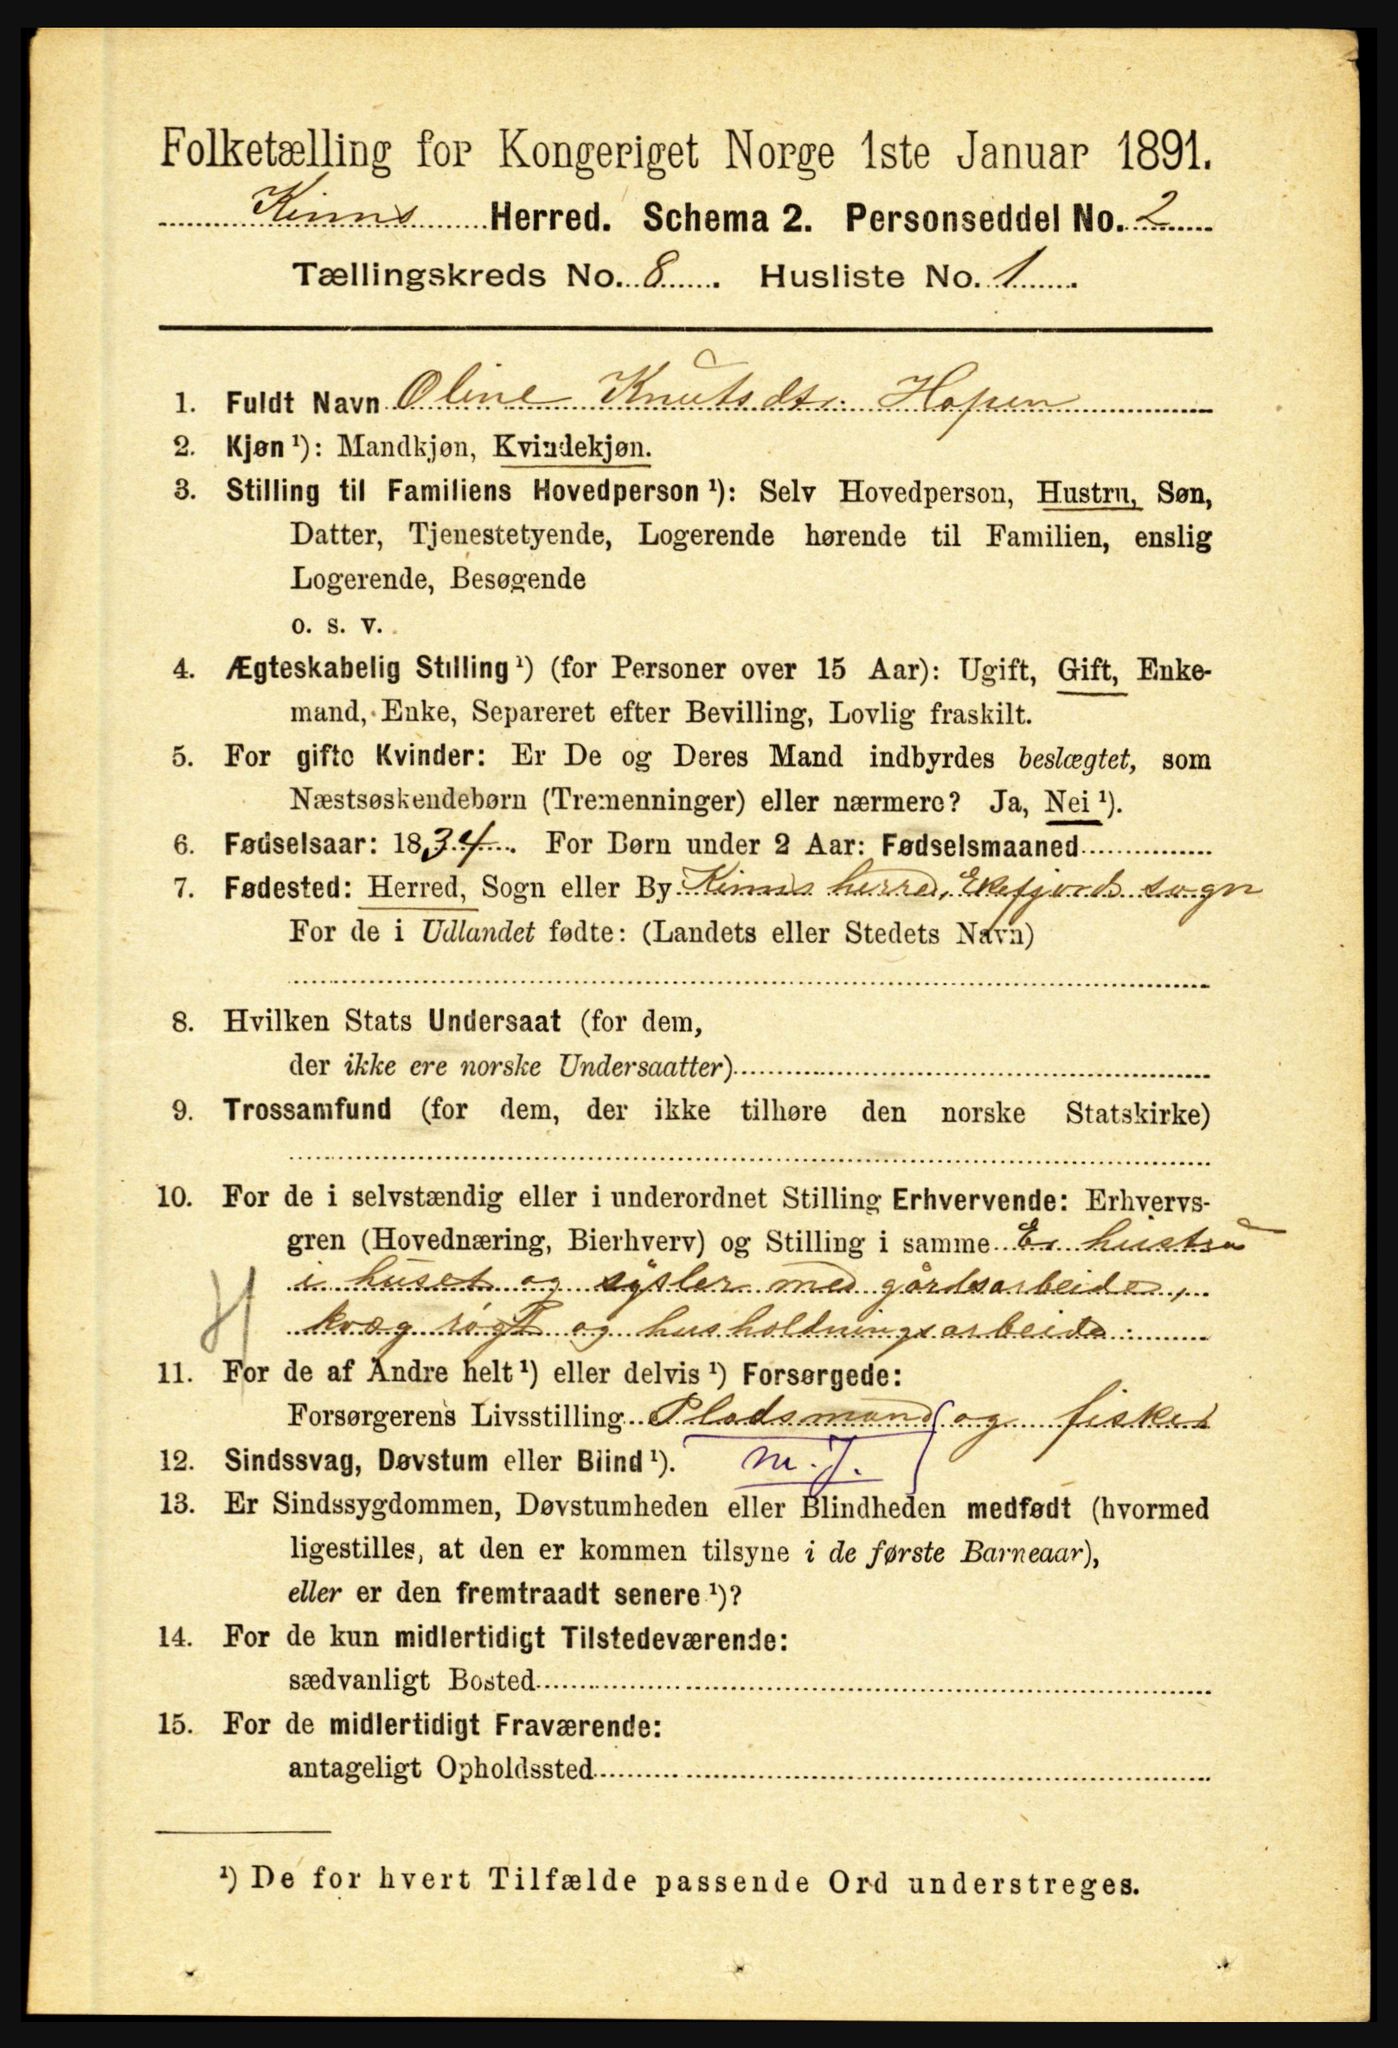 Folketælling for Kongeriget Norge 1ste Januar 1891.
Kinns Herred. Schema 2. Personseddel No. 2
Tællingskreds No. 8. Husliste No. 1.
1. Fuldt Navn Oline Knutsdtr. Hopen
2. Kjøn ¹): Mandkjøn, Kvindekjøn.
3. Stilling til Familiens Hovedperson ¹): Selv Hovedperson, Hustru, Søn,
Datter, Tjenestetyende, Logerende hørende til Familien, enslig
Logerende, Besøgende
o. s. v.
4. Ægteskabelig Stilling ¹) (for Personer over 15 Aar): Ugift, Gift, Enke-
mand, Enke, Separeret efter Bevilling, Lovlig fraskilt.
5. For gifte Kvinder: Er De og Deres Mand indbyrdes beslægtet, som
Næstsøskendebørn (Tremenninger) eller nærmere? Ja, Nei ¹).
6. Fødselsaar: 1834. For Børn under 2 Aar: Fødselsmaaned
7. Fødested: Herred, Sogn eller By Kinns herred, Ekefjords sogn
For de i Udlandet fødte: (Landets eller Stedets Navn)
8. Hvilken Stats Undersaat (for dem,
der ikke ere norske Undersaatter)
9. Trossamfund (for dem, der ikke tilhøre den norske Statskirke)
10. For de i selvstændig eller i underordnet Stilling Erhvervende: Erhvervs-
gren (Hovednæring, Bierhverv) og Stilling i samme Er hustru
i huset og sysler med gårdsarbeide,
kvæg røgt og husholdningsarbeide.
H
11. For de af Andre helt ¹) eller delvis ¹) Forsørgede:
Forsørgerens Livsstilling Pladsmand og fisker
12. Sindssvag, Døvstum eller Blind ¹). m. J.
13. Er Sindssygdommen, Døvstumheden eller Blindheden medfødt (hvormed
ligestilles, at den er kommen tilsyne i de første Barneaar),
eller er den fremtraadt senere ¹)?
14. For de kun midlertidigt Tilstedeværende:
sædvanligt Bosted
15. For de midlertidigt Fraværende:
antageligt Opholdssted
¹) De for hvert Tilfælde passende Ord understreges.